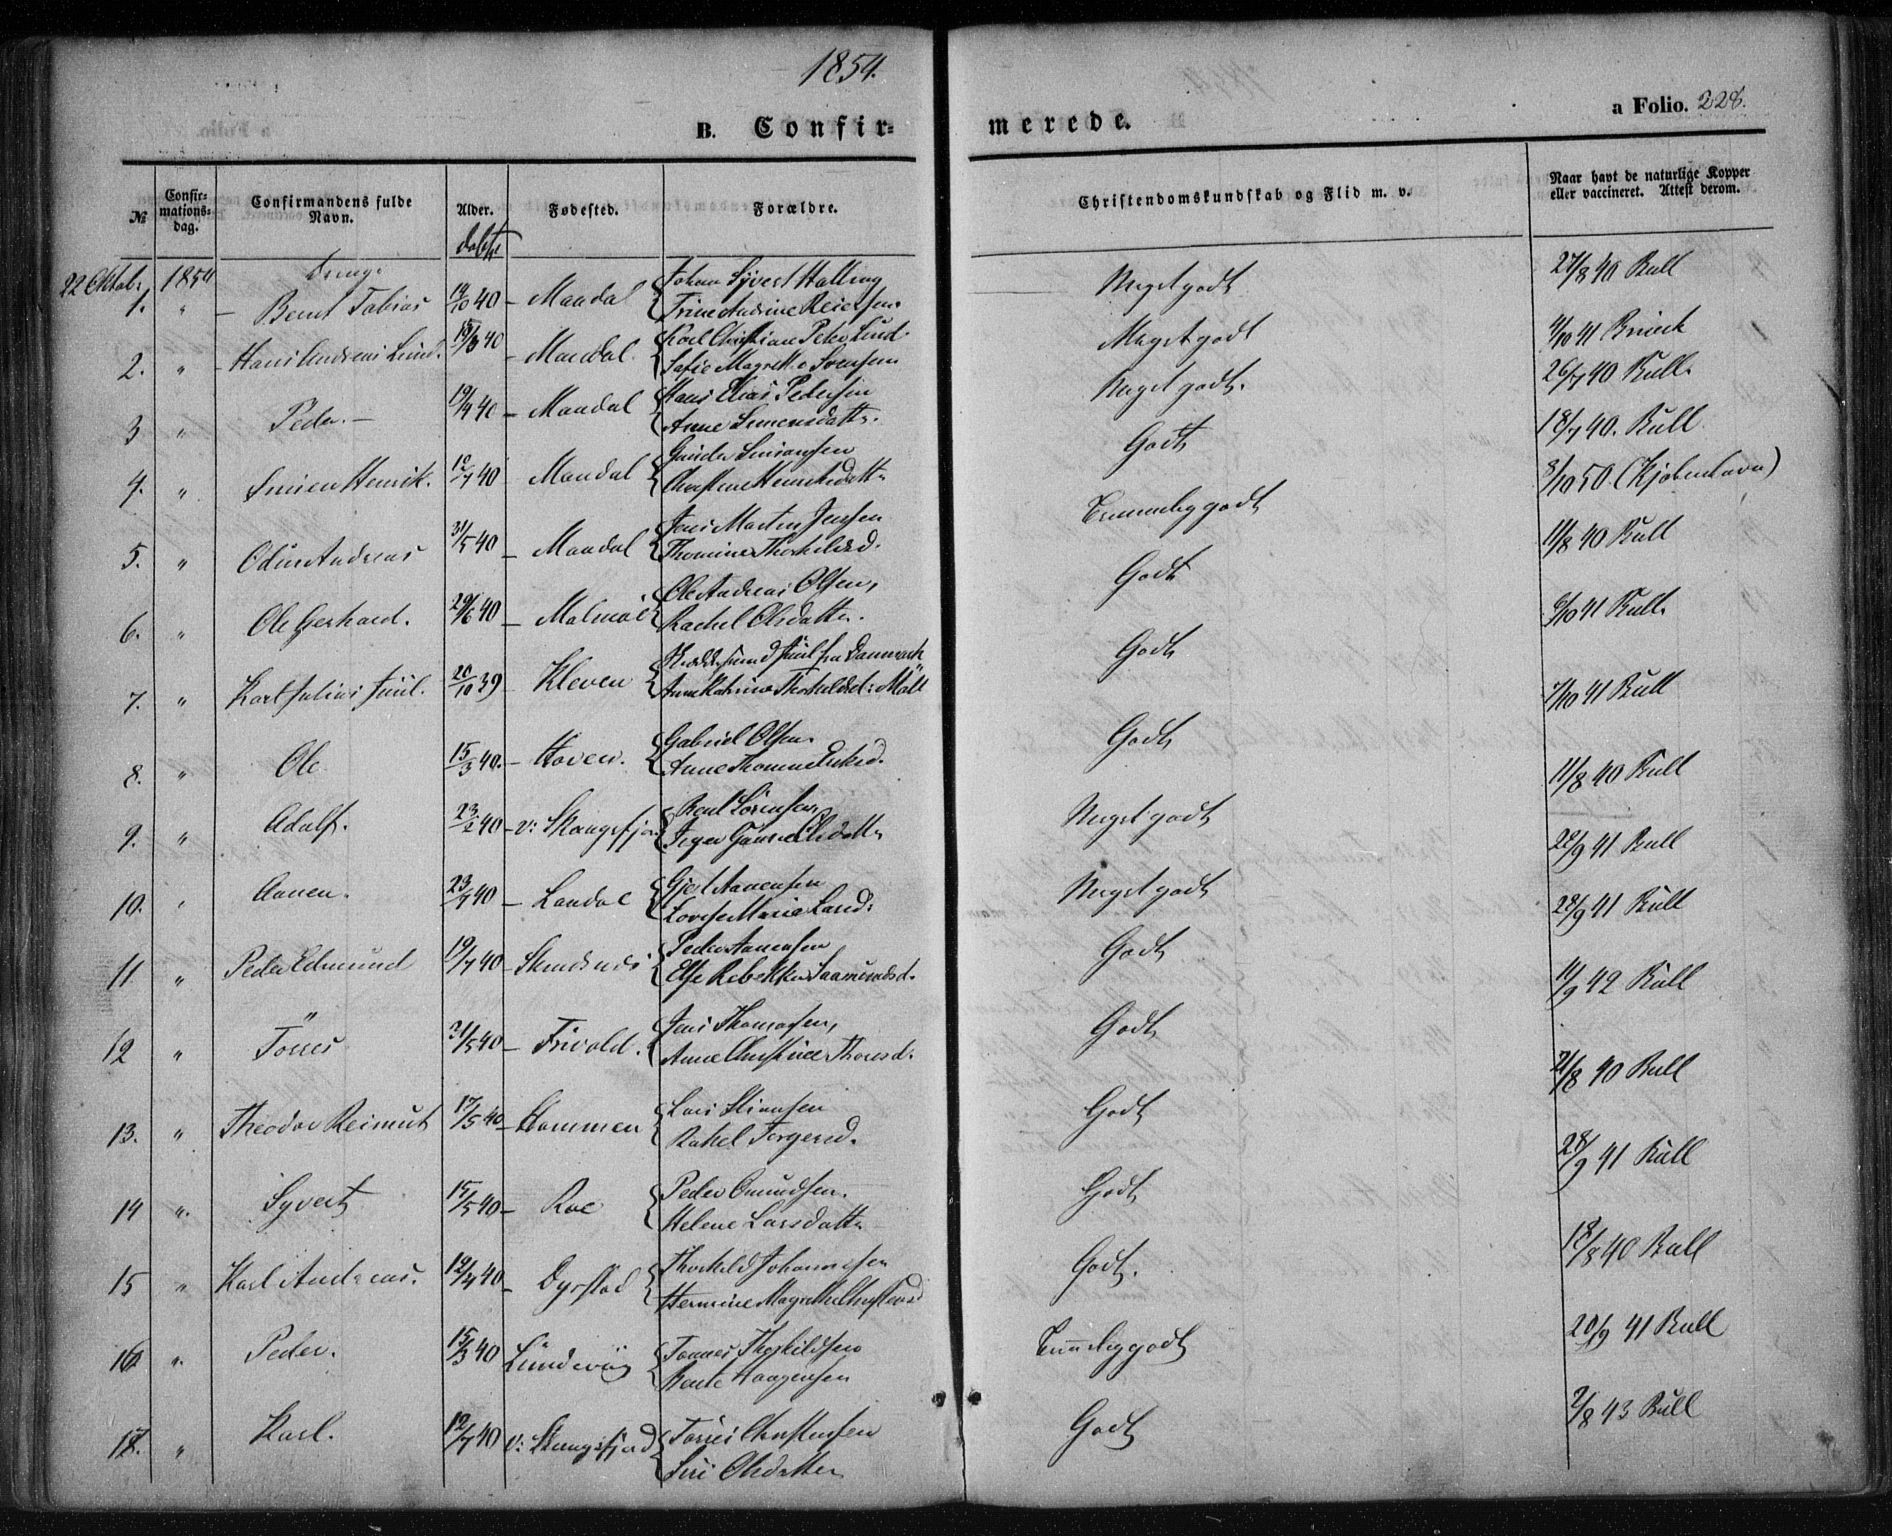 1854.
B. Confir=
merede.
a Folio. 228.
№
Confir-
mations-
dag.
Confirmandens fulde
Navn.
Alder.
Fødested.
Forældre.
Christendomskundskab og Flid m. v.
Naar havt de naturlige Kopper
eller vaccineret. Attest derom.
22 Oktob. 1854
Drenge
1. " Bernt Tobias 40 – Mandal Johan Syvert Halling
Trine Andrine Reiersen
Meget godt 27/8 40 Bull
2. " Hans Andreas Lund. 40 – Mandal. Karl Christian Peter Lund
Sofie Magrethe Svensen
Meget godt 4/10 41 Brinch
3 " Peder. – 19/4 40 – Mandal Hans Elias Pedersen
Anne Simensdatter
Meget godt. 26/7 40 Bull.
4. " Simen Henrik. 12/7 40 Mandal Gunder Simonsen
Henriksdatter
Godt 18/7 40. Bull
5. " Odin Andreas 31/5 40 – Mandal Jens Martin Jensen
Thomine Thorkildsd.
Temmelig godt 3/10 50 (Kjøbenhavn)
6. " Ole Gerhard. 29/6 40 – Malmøe Ole Andreas Olsen,
Rachel Olsdatter.
Godt 11/8 40 Bull
7. " Karl Julius Juul. 20/10 39 – Kleven Juul fra Danmark
Anne Kathrine Thorkildsd: Møll
Godt 6/10 41 Bull.
8. " Ole 15/3 40. – Hoven. Gabriel Olsen
Anne Thomine
Godt 7/10 41 Bull
9. " Adolf. 23/2 40 – v: Skougsfjor Bent Sørensen
Inger Olsdatter
Meget godt 11/8 40 Bull
10. " Aanen. 23/4 40 – Landøe Gjert Aanensen
Lovise Marie Larsd:
Meget godt 22/9 41 Bull
11 " Peder Edmund 19/7 40 – Skindsnes Peder Aanensen
Else Rebekka Saamundsd.
Godt 28/9 41 Bull
12 " Tørres 31/5 40 – Frivold. Jens Thomasen,
Anne Christine Thoresd.
Godt 11/9 42 Bull
13. " Theodor Reimut 17/5 40 – Hommen Lars Stiansen
Rakel Torgersd.
Godt 21/8 40 Bull
14 " Syvert 15/5 40 – Roe Peder Omundsen.
Helene Larsdatter
Godt 28/9 41 Bull
15 " Karl Andreas. 12/4 40 – Dyrstad Thorkild Johannesen
Hermine Magrethe Christensd
Godt. 18/8 40 Bull
16 " Peder. 15/3 40 Lundevåg Tønnes Thorkildsen
Bente Haagensen
Temelig godt 20/9 41 Bull
18. " Karl. 12/7 40 v: Skougsfjord Tørres Christensen
Siri Olsdatter
Godt 2/8 43 Bull